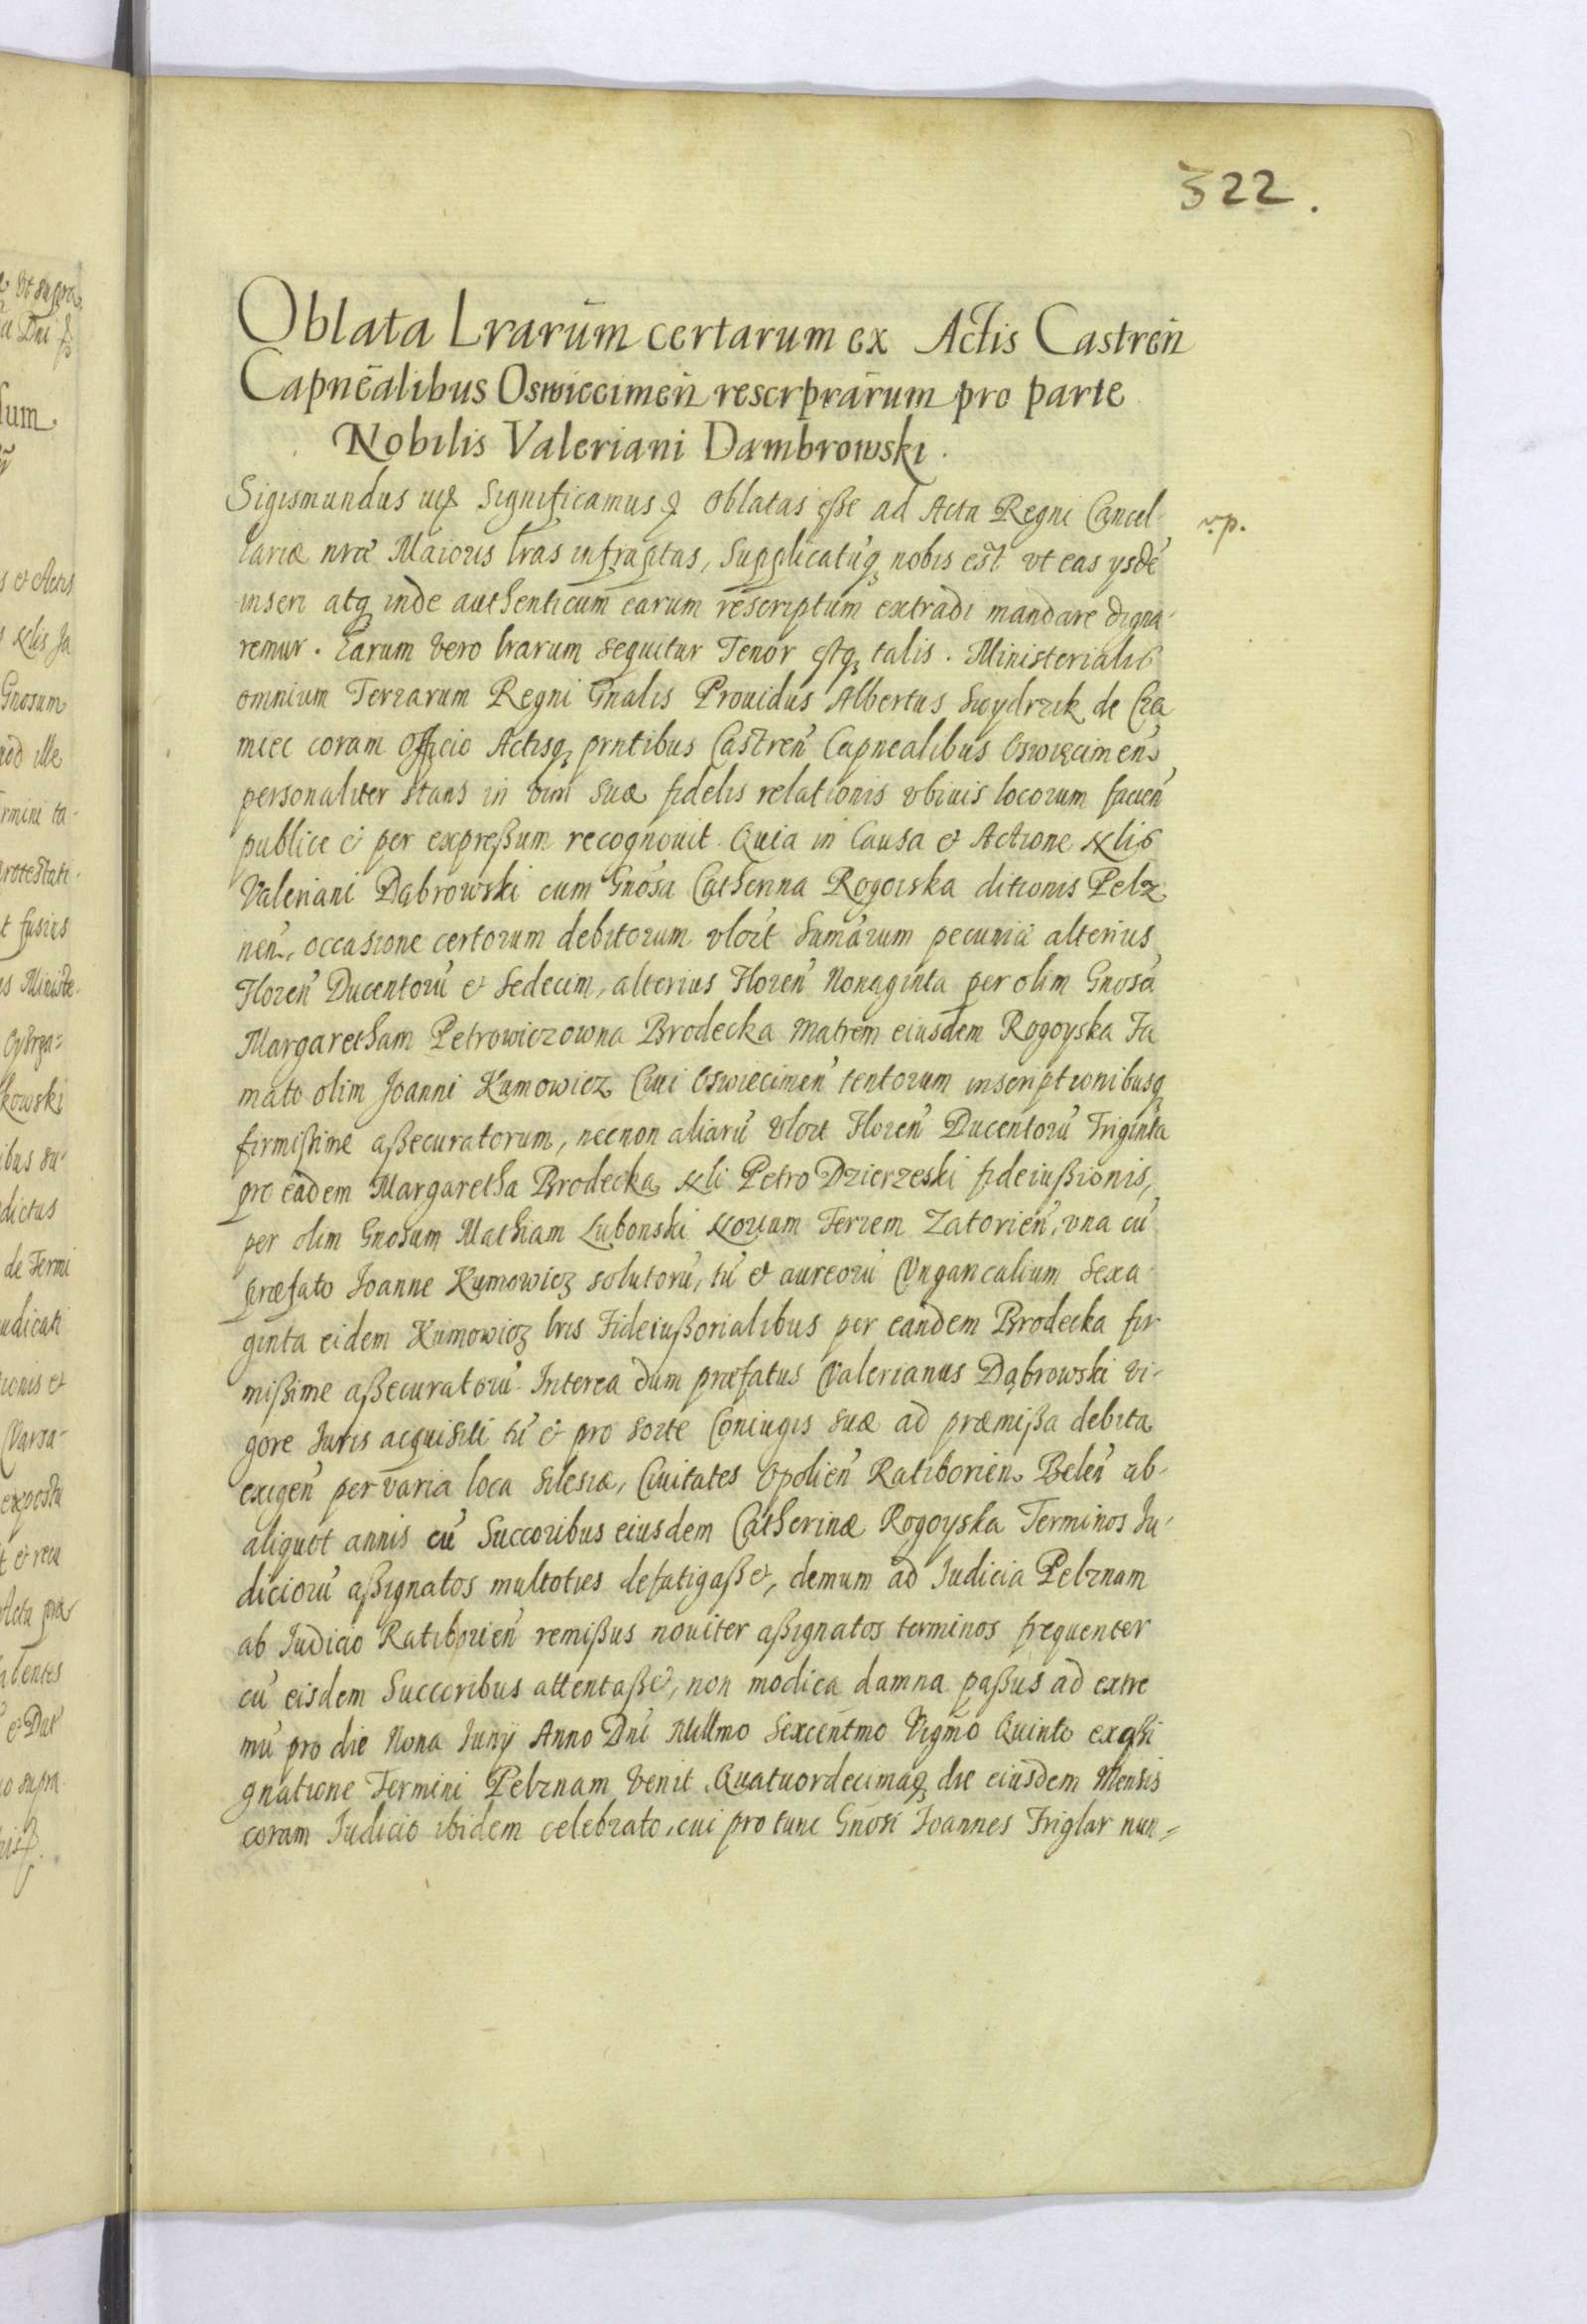 322.
Oblata Lrarum certarum ex Actis Castren
Capnealibus Oswiecimen rescrptarum pro parte
Nobilis Valeriani Dambrowski.
Sigismundus Significamus Oblatas esse ad Acta Regni Cancel-
v.p.
lariæ nræ Maioris lras infrascptas, Supplicatūq nobis est vt eas ysdē
inseri atq inde authenticum earum rescriptum extradi mandare digna-
remur. Earum vero lrarum sequitur Tenor estq talis. Ministerialis
omnium Terrarum Regni Gnalis Prouidus Albertus Swydrzik de Cza
miec coram Officio Actisq prntibus Castren Capnealibus Oswięcimen
personaliter stans in vim suæ fidelis relationis vbiuis locorum facien
publice & per expreßum recognouit Quia in Causa et Actione Nlis
Valeriani Dąbrowski cum Gnosa Catherina Rogoiska ditionis Pelz
nen, occasione certorum debitorum vlort Sumarum pecunia alterius
Floren Ducentorū et Sedecim, alterius Floren Nonaginta per olim Gnosā
Margaretham Petrowiczowna Brodecka matrem eiusdem Rogoyska Fa
mato olim Joanni Kumowicz Ciui Oswiecimen tentorum inscriptionibusq
firmißime aßecuratorum, necnon aliarū vlort Floren Ducentorū Triginta
pro eadem Margaretha Brodecka Nli Petro Dzierzeski fideiußionis,
per olim Gnosum Mathiam Lubonski Notium Terrem Zatorien, vna cū
præfato Joanne Kumowicz solutorū, tū et aureorū Vngaricalium Sexa-
ginta eidem Kumowicz lris Fideiußorialibus per eandem Brodecka fir
mißime aßecuratorū. Interea dum præfatus Valerianus Dąbrowski vi-
gore Iuris acquisiti tū & pro sorte Coniugis suæ ad præmißa debita
exigen per varia loca Silesiæ, Ciuitates Opolien Ratiborien Belen ab
aliquot annis cū Succoribus eiusdem Catherinæ Rogoyska Terminos Iu-
diciorū aßignatos multoties defatigaßet, demum ad Iudicia Pelznam
ab Iudicio Ratiborien remißus nouiter aßignatos terminos frequenter
cū eisdem Succoribus attentaßet, non modica damna paßus ad extre
mū pro die Nona Iunij Anno Dni Millmo Sexcentmo Vigmo Quinto ex aßi
gnatione Termini Pelznam venit Quatuordecimaq die eiusdem Mensis
coram Iudicio ibidem celebrato, cui pro tunc Gnosi Joannes Friglar nun-